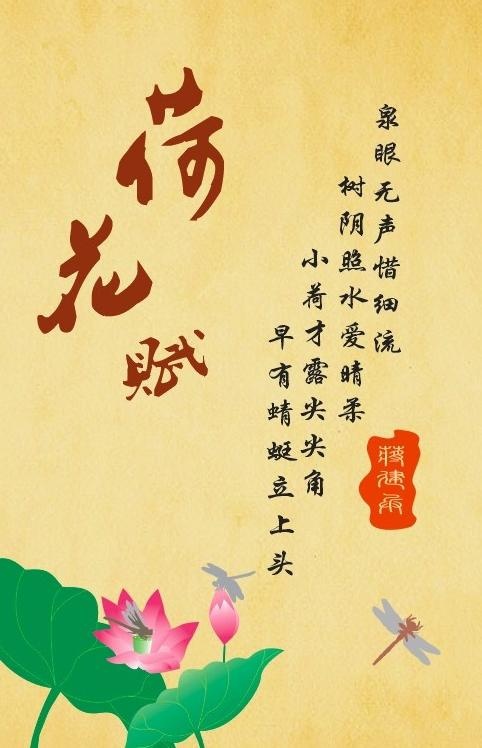 荷花赋
泉眼无声惜细流
树阴照水爱晴柔
小荷才露尖尖角
早有蜻蜓立上头